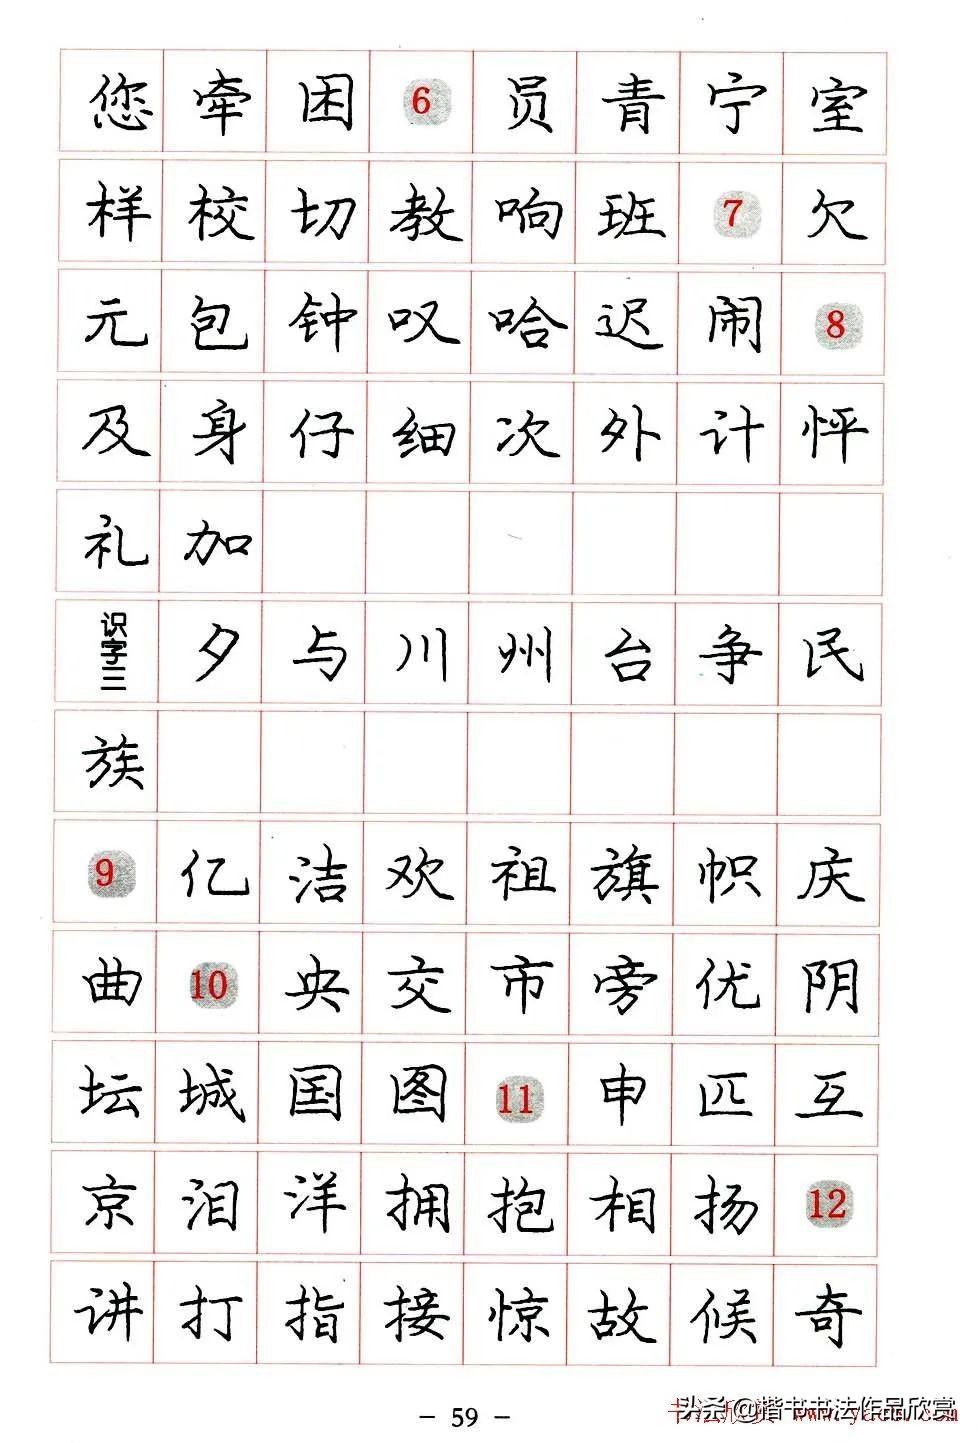 您 牵 困 6 员 青 宁 室
样 校 切 教 响 班 7 欠
元 包 钟 叹 哈 迟 闹 8
及 身 仔 细 次 外 计 怦
礼 加
识字三 夕 与 川 州 台 争 民
族
9 亿 洁 欢 祖 旗 帜 庆
曲 10 央 交 市 旁 优 阴
坛 城 国 图 11 申 匹 互
京 泪 洋 拥 抱 相 扬 12
讲 打 指 接 惊 故 候 奇
- 59 -
头条@楷书书法作品欣赏